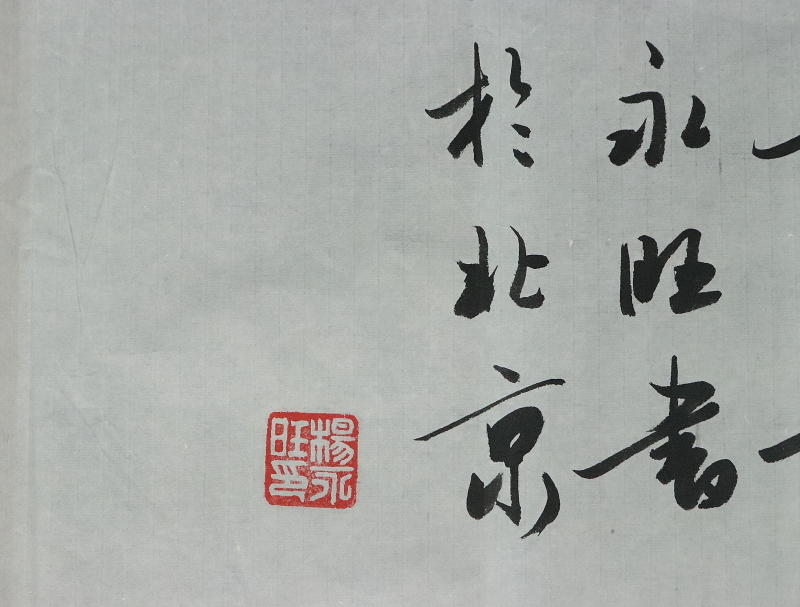 永旺書
於北京
楊永
旺印